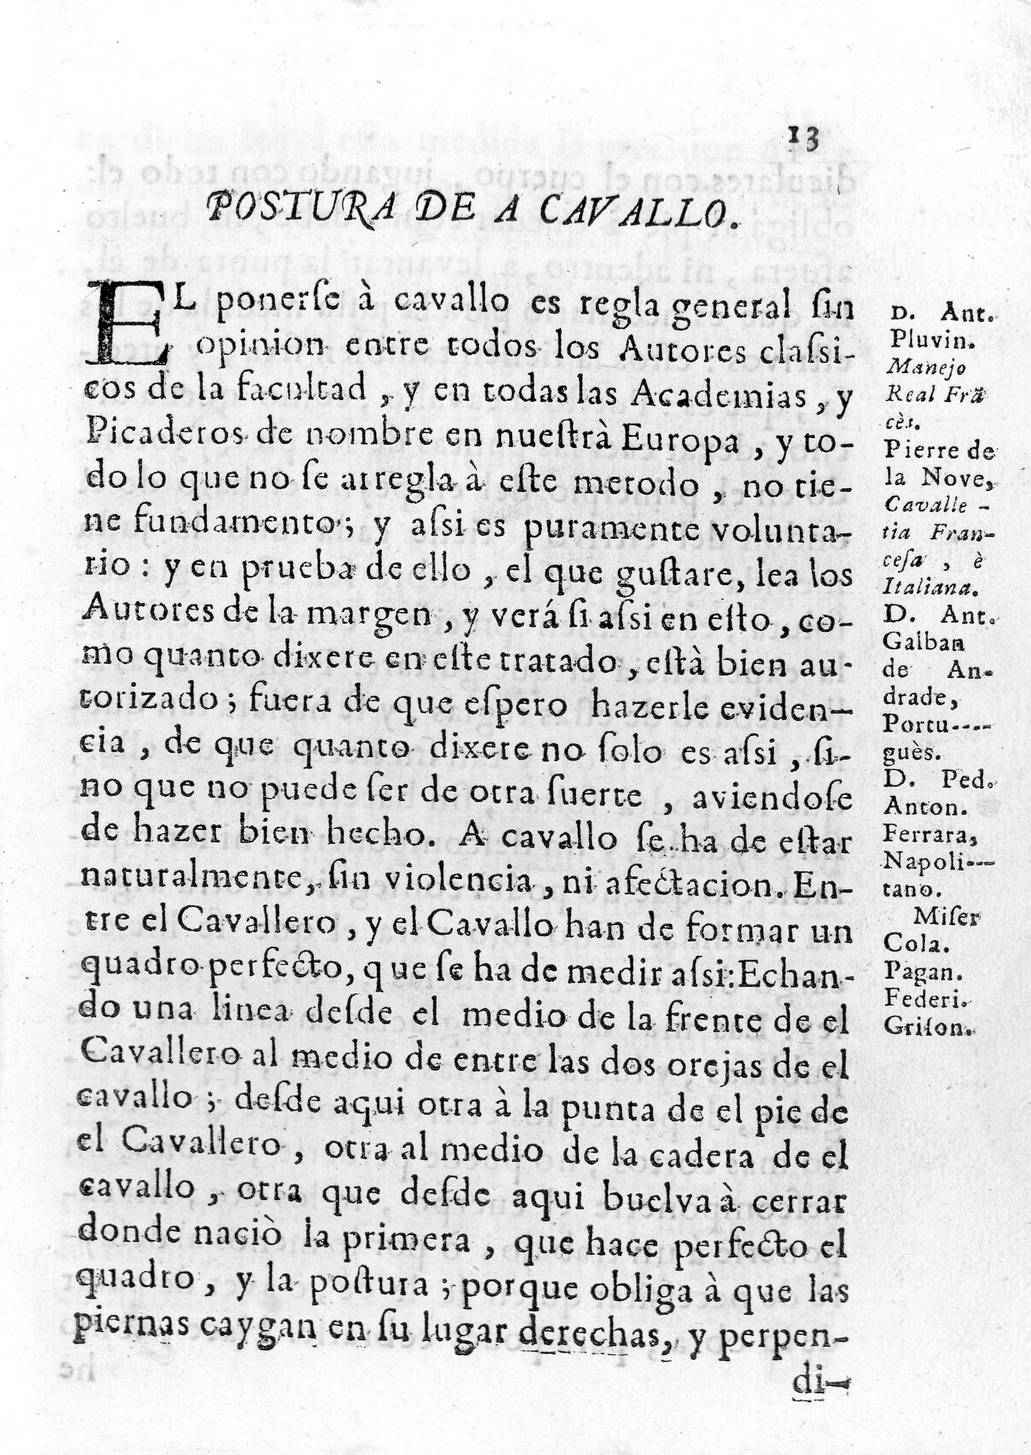 13
POSTURA DE A CAVALLO.
EL ponerſe à cavallo es regla general ſin
opinion entre todos los Autores claſsi-
cos de la facultad, y en todas las Academias, y
Picaderos de nombre en nueſtrà Europa, y to-
do lo que no ſe arregla à eſte metodo, no tie-
ne fundamento; y aſsi es puramente volunta-
rio: y en prueba de ello, el que guſtare, lea los
Autores de la margen, y verá ſi aſsi en eſto, co-
mo quanto dixere en eſte tratado, eſtà bien au-
torizado; fuera de que eſpero hazerle eviden-
cia, de que quanto dixere no ſolo es aſsi, ſi-
no que no puede ſer de otra ſuerte, aviendoſe
de hazer bien hecho. A cavallo ſe ha de eſtar
naturalmente, ſin violencia, ni afectacion. En-
tre el Cavallero, y el Cavallo han de formar un
quadro perfecto, que ſe ha de medir aſsi: Echan-
do una linea deſde el medio de la frente de el
Cavallero al medio de entre las dos orejas de el
cavallo; deſde aqui otra à la punta de el pie de
el Cavallero, otra al medio de la cadera de el
cavallo, otra que deſde aqui buelva à cerrar
donde naciò la primera, que hace perfecto el
quadro, y la poſtura; porque obliga à que las
piernas caygan en ſu lugar derechas, y perpen-
di-
D. Ant.
Pluvin.
Manejo
Real Frã
cès.
Pierre de
la Nove,
Cavalle-
tia Fran-
ceſa, è
Italiana.
D. Ant.
Galban
de An-
drade,
Portu----
guès.
D. Ped.
Anton.
Ferrara,
Napoli---
tano.
Miſer
Cola.
Pagan.
Federi.
Griſon.